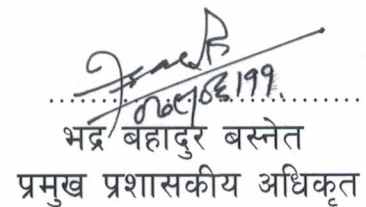 भद्र बहादुर बस्नेत
प्रमुख प्रशासकीय अधिकृत